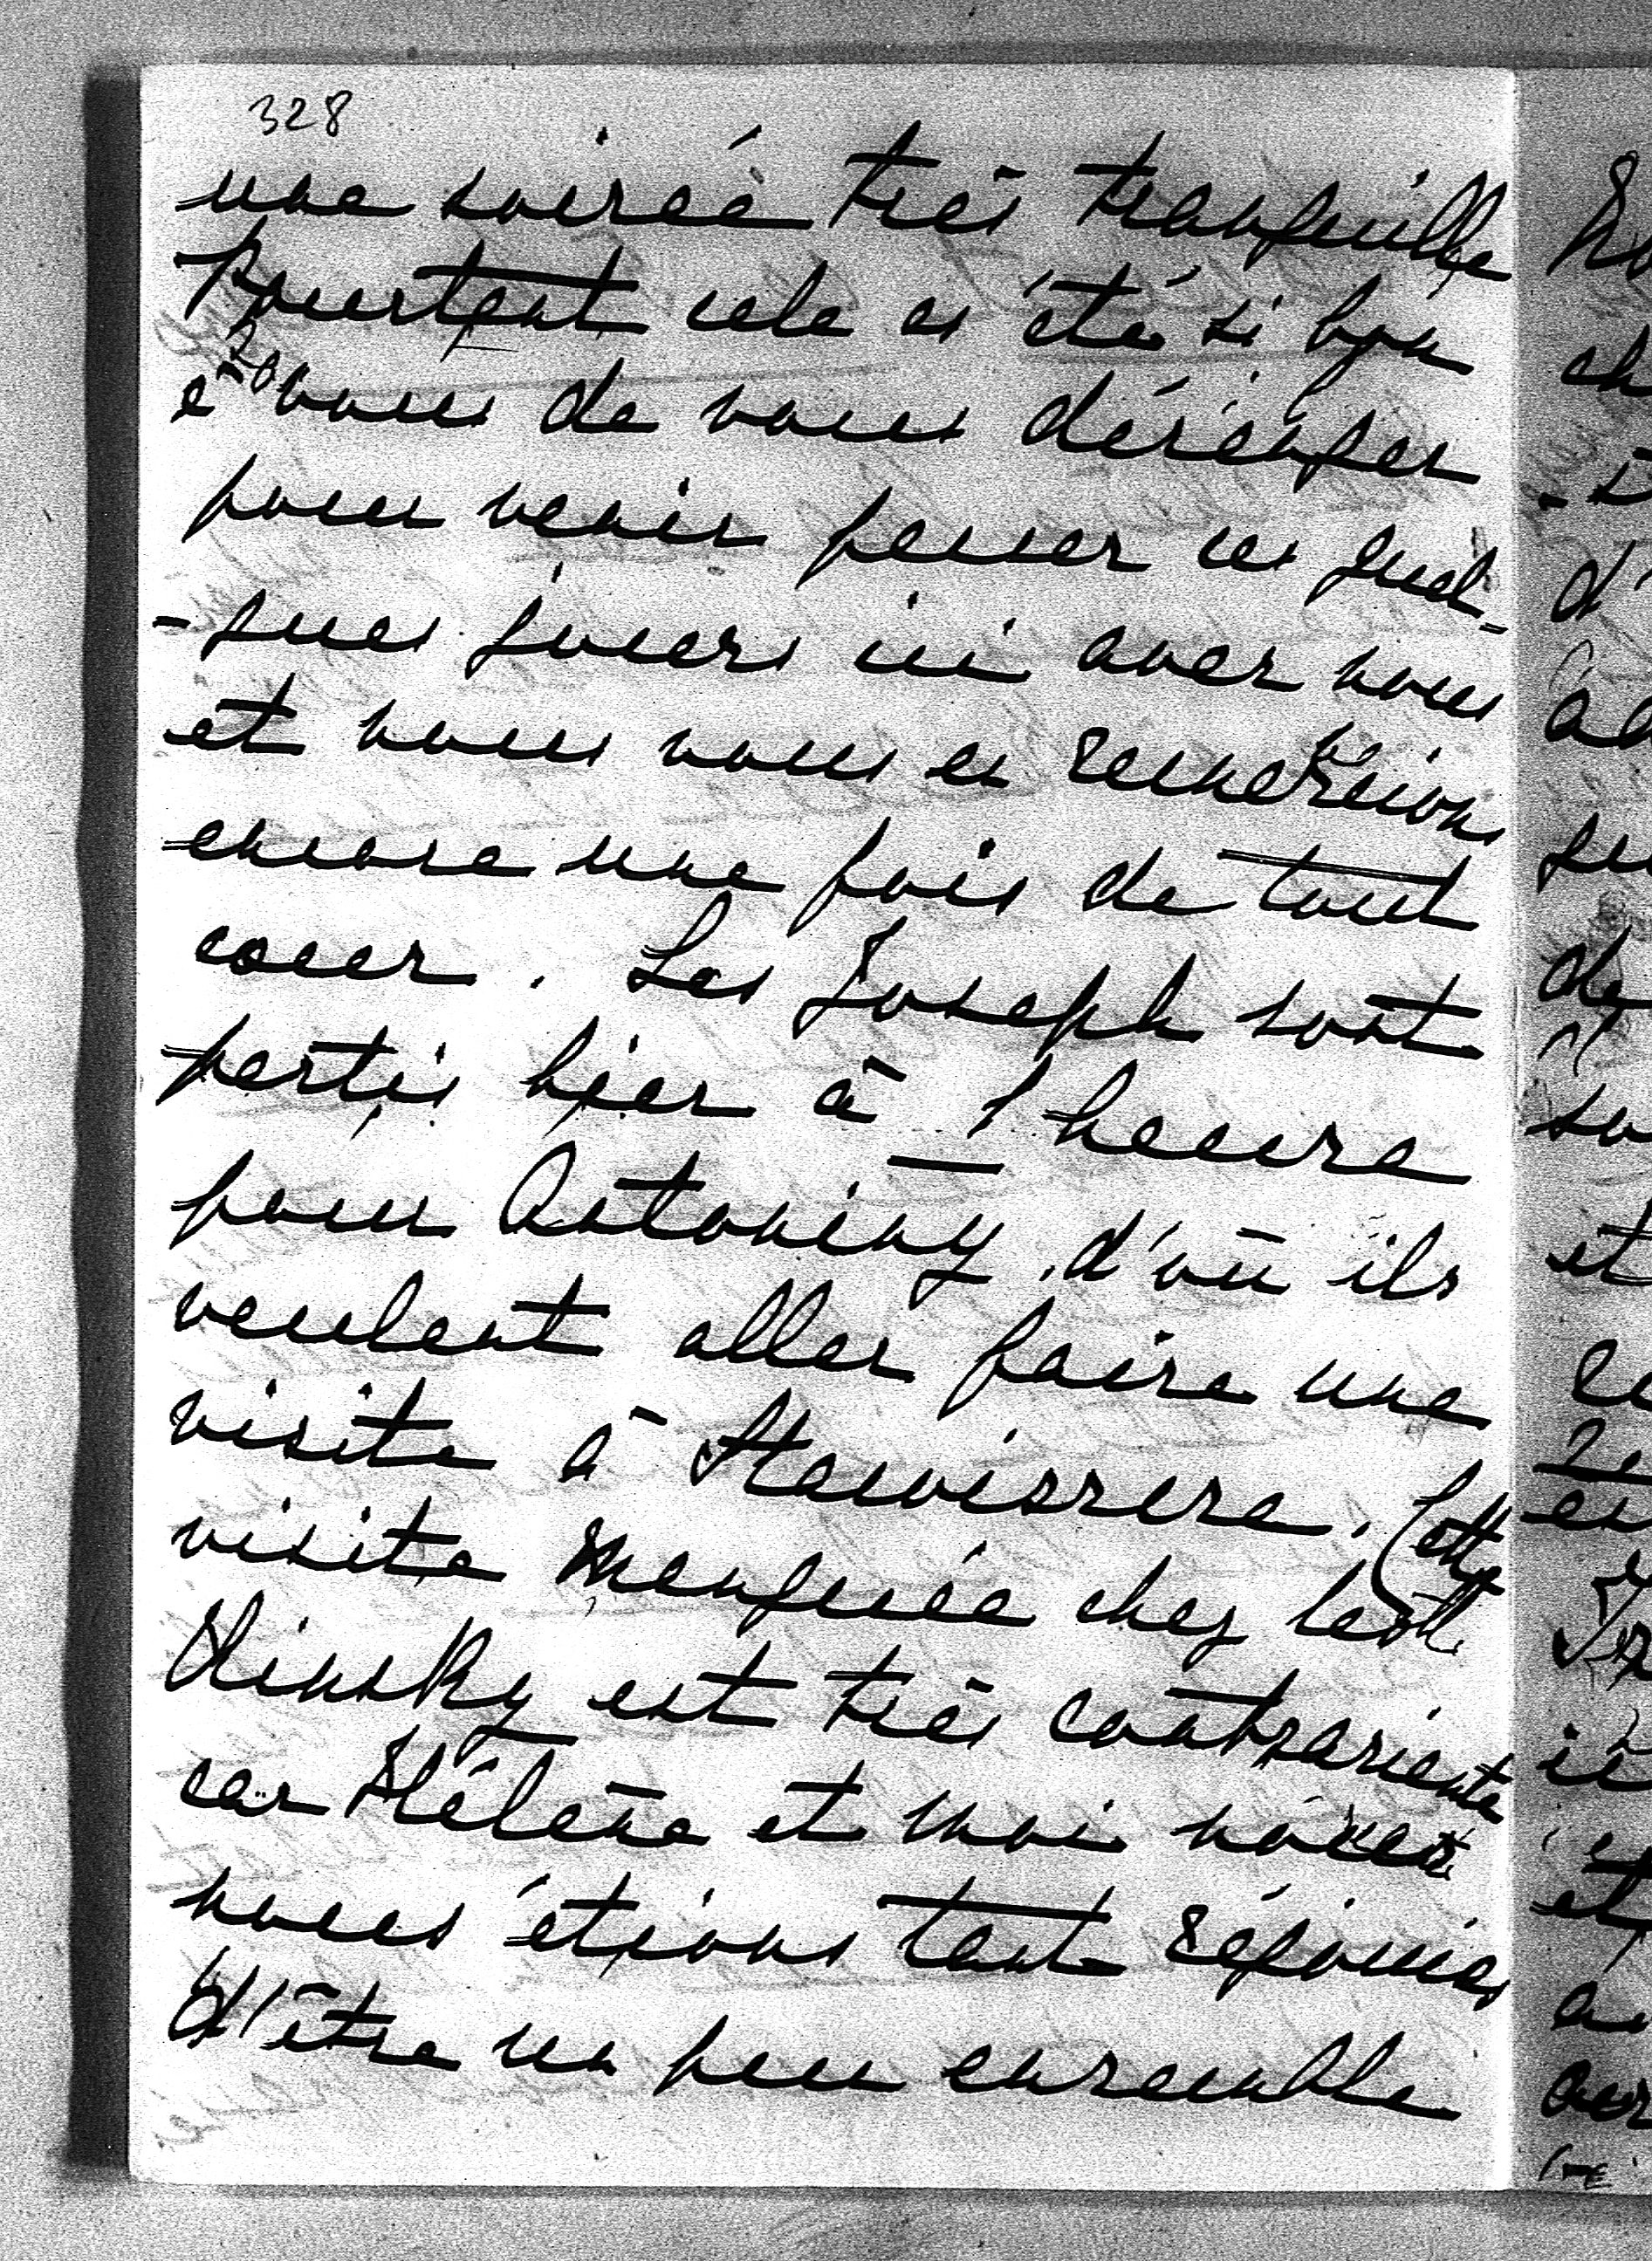 328
une soirée très tranquille
pourtant cela a été si bon
à vous de vous déranger
pour venir passer ces quel-
-ques jours ici avec nous
et nous vous en remercions
encore une fois de tout
coeur. Les Joseph sont
partis hier à 1 heure
pour Antoniny, d'où ils
veulent aller faire une
visite à . Cette
visite manquée chez les
Kinsky est très contrariante
car Hélène et moi nous
nous étions tant réjouies
d'être un peu ensemble